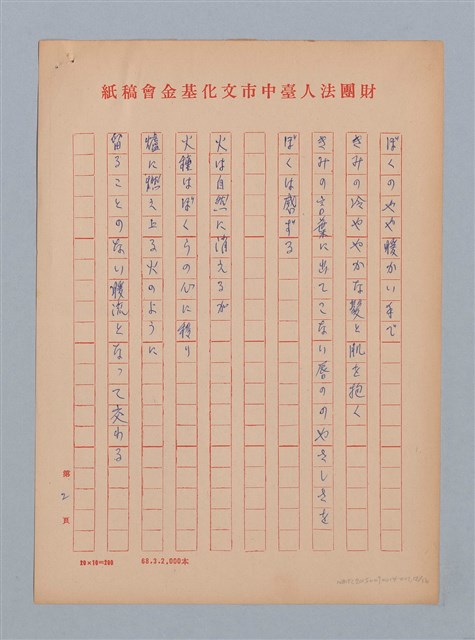 財團法人臺中市文化基金會稿紙
ぼくのやや暖かい手で
きみの冷ややかな髪と肌を抱く
きみの言葉に出てこない唇ののやさしさを
ぼくは感ずる
火は自然に消えるが
火種はぼくらの心に移り
爐に燃え上る火のように
留ることのない暖流となって交わる
第2頁
20×10=200
68.3.2,000本